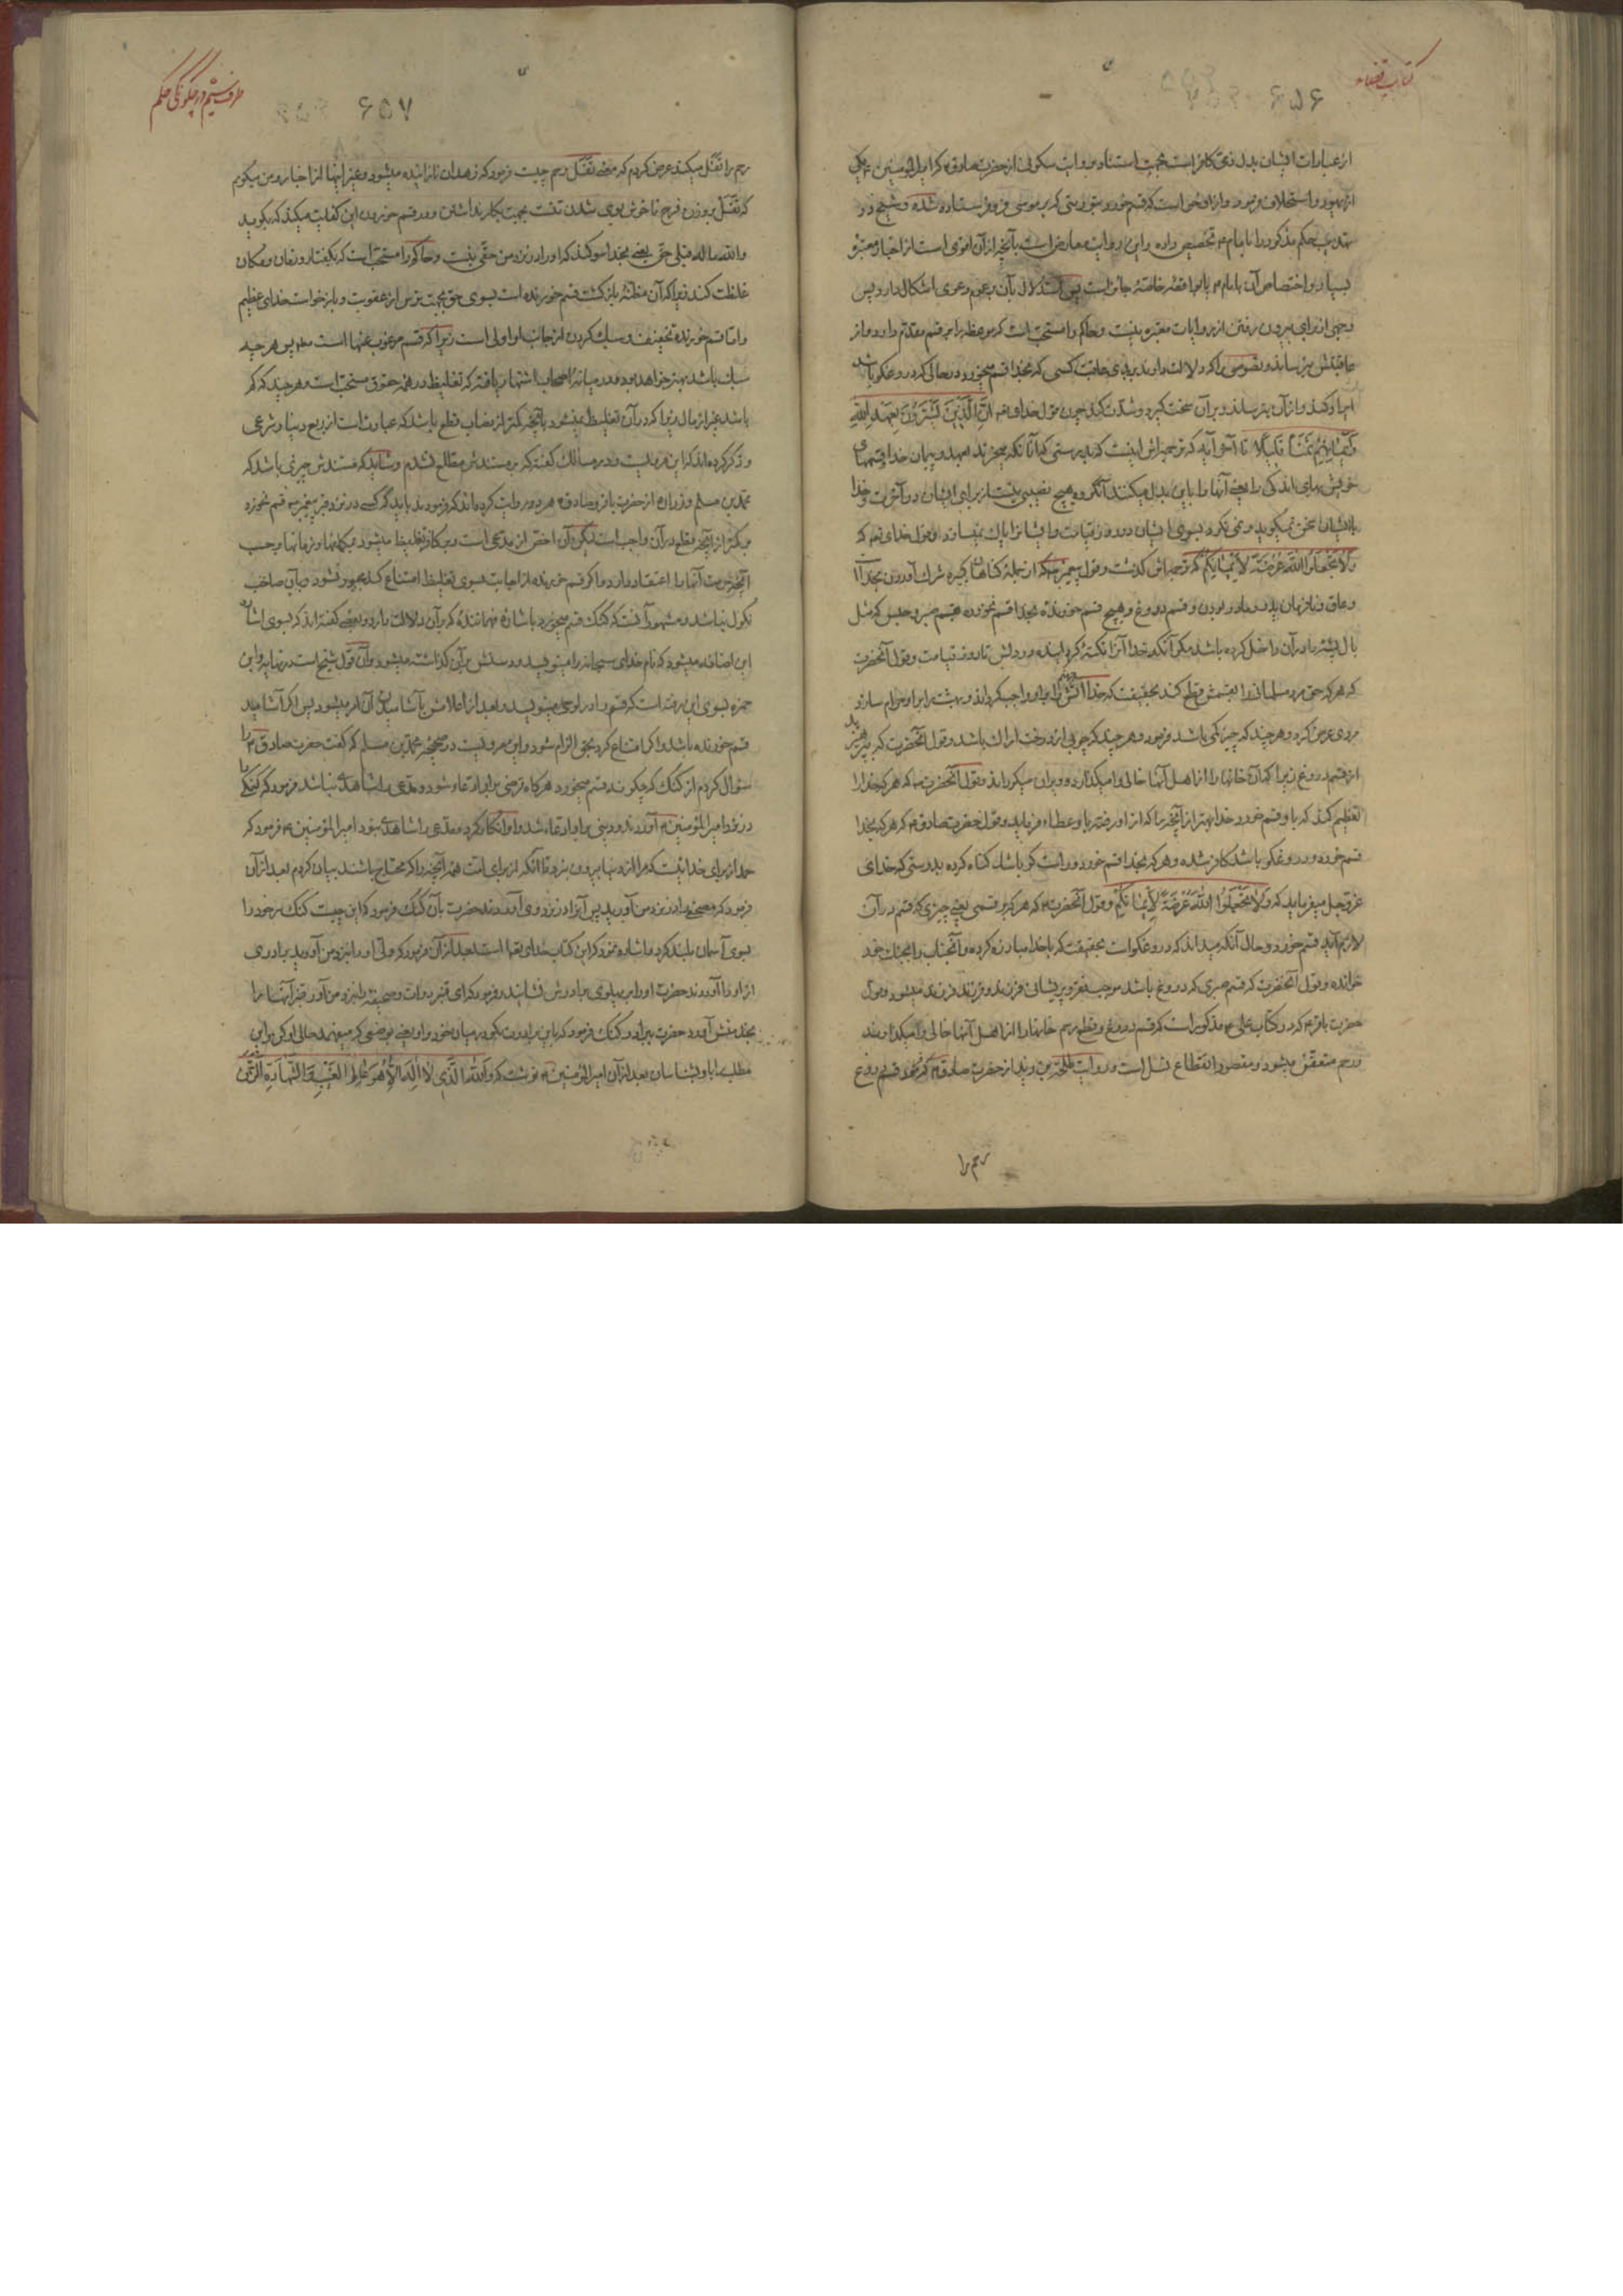 کتاب قضاء
۶۵۶
از عبارات ایشان بدل ذمی کافر است بجهت استناد بروایت سکونی از حضرت صادق ع که امیرالمؤمنین ع یکی
از یهود را استحلاف فرمود و از او نحوی است که قسم خورد بتوریتی که بر موسی فرو فرستاده شده و شیخ در
تهذیب حکم مذکور را بامام ع تخصیص داده و این روایت معارض است بآنچه از آن اقوی است از اخبار معتبره
بسیار و اختصاص آن بامام ع یا بواقعهٔ خاصّه جائز است پس استدلال بآن بعموم دعوی اشکال دارد پس
وجهی از برای بیرون رفتن از روایات معتبره نیست و حاکم را مستحب است که موعظه را بر قسم مقدّم دارد و از
عاقبتش بترساند و نصوصی را که دلالت دارند بر بدی عاقبت کسی که بخدا قسم میخورد در حالی که دروغگو باشد
اظهار کند و از آن بترساند و بر آن سخت گیرد و شدّت کند چون قول خدای تع انّ الّذین یشترون بعهد الله
و ایمانهم ثمناً قلیلاً تا آخر آیه که ترجمه‌اش اینست که بدرستی که آنانکه میخرند بعهد و پیمان خدا و قسمهای
خویش بهای اندکی را یعنی آنها را باین بدل میکنند آنگروه هیچ نصیبی نیست از برای ایشان در آخرت و خدا
با ایشان سخن نمیگوید و نمی‌نگرد بسوی ایشان در روز قیامت و ایشانرا پاک نمیسازد و قول خدای تع که
ولا تجعلوا الله عرضة لایمانکم که ترجمه‌اش گذشت و قول پیغمبر ص که از جملهٔ گناهان کبیره شرک آوردن بخدا
و عاق و نافرمان پدر و مادر بودن و قسم دروغ و هیچ قسم خورنده بخدا قسم نخورده بقسم صبر و حبس که مثل
بال پشه‌ را در آن داخل کرده باشد مگر آنکه خدا آنرا نکتهٔ گردانیده در دلش تا روز قیامت و قول آنحضرت
که هر که حق مرد مسلمانی را بقسمش قطع کند بحقیقت که خدا آتش را بر او واجب گرداند و بهشت را بر او حرام سازد
مردی عرض کرد و هرچند که چیز کمی باشد فرمود و هرچند که چوبی از درخت اراک باشد و قول آنحضرت که بپرهیزید
از قسم دروغ زیرا که آن خانها را از اهل آنها خالی وامیگذارد و ویران میگرداند و قول آنحضرت ص که هر که خدا را
تعظیم کند که باو قسم خورد خدا بهتر از آنچه را که از او رفته باو عطاء فرماید و قول حضرت صادق ع که هر که بخدا
قسم خورد و دروغگو باشد کافر شده و هر که بخدا قسم خورد و راست گو باشد گناه کرده بدرستی که خدای
عزّوجلّ میفرماید که ولا تجعلوا الله عرضة لایمانکم و قول آنحضرت ع که هر که بر قسمی یعنی چیزی که قسم در آن
لازم آید قسم خورد و حال آنکه میداند که دروغگو است بحقیقت که با خدا مبارزه کرده و آنجناب را بجنگ خود
خوانده و قول آنحضرت که قسم صبری که دروغ باشد موجب فقر و پریشانی فرزند و فرزند فرزند میشود و قول
حضرت باقر ع که در کتاب علی ع مذکور است که قسم دروغ و قطع رحم خانها را از اهل آنها خالی وامیگذارند
و رحم متعقّن میشود و مقصود انقطاع نسل است و در روایت طلحة بن زید از حضرت صادق ع که فرمود قسم دروغ
رحم را
طرف ششم در چگونگی حکم
۶۵۷
رحم را نقل میکند عرض کردم که معنی نقل رحم چیست فرمود که زهدان نازاینده میشود و غیر اینها از اخبار و من میگویم
والله ماله قبلی حق یعنی بخدا سوگند که او را در نزد من حقّی نیست و حاکم را مستحب است که بگفتار و زمان و مکان
غلظت کند زیرا که آن مظنّهٔ بازگشت قسم خورنده است بسوی حق بجهت ترس از عقوبت و بازخواست خدای عظیم
و امّا قسم خورنده تخفیف و سبک کردن از جانب او اولی است زیرا که قسم مرغوب عنها است مطلقا پس هرچه
سبک باشد بهتر خواهد بود و در میانهٔ اصحاب اشتهار یافته که تغلیظ در همهٔ حقوق مستحب است و هرچند که کم
باشد غیر از مال زیرا که در آن تغلیظ نمیشود بآنچه کمتر از نصاب قطع باشد که عبارت است از ربع دینار شرعی
و ذکر کرده‌اند که این مرویست و در مسالک گفته که بر مستندش مطّلع نشدم و شاید که مستندش خبری باشد که
محمّد بن مسلم و زراره از حضرت باقر و صادق ع هر دو روایت کرده‌اند که فرمودند باید که کسی در نزد قبر پیغمبر ص قسم نخورد
بر کمتر از آنچه قطع در آن واجب است لیکن آن اخصّ از مدّعی است و بر کافر تغلیظ میشود بمکانها و زمانها بر حسب
آنچه حرمت آنها را اعتقاد دارد و اگر قسم خورنده از اجابت بسوی تغلیظ امتناع کند مجبور نشود و بآن صاحب
نکول نباشد و مشهور آنست که گنگ قسم میخورد باشارهٔ فهمانندهٔ که بر آن دلالت دارد و بعضی گفته‌اند که بسوی اشاره
این اضافه میشود که نام خدای سبحانه را مینویسد و دستش بر آن گذاشته میشود و آن قول شیخ است در نهایه و ابن
حمزه بسوی این رفته است که قسم را در لوحی مینویسد و بعد از اعلامش بآشامیدن آن امر میشود پس اگر آشامید
قسم خورنده باشد و اگر امتناع کرد بحق الزام شود و این مرویست در صحیحهٔ محمّد بن مسلم که گفت حضرت صادق ع را
سؤال کردم از گنگ که چگونه قسم میخورد هرگاه قرضی بر او ادّعاء شود و مدّعی را شاهدی نباشد فرمود که گنگی را
در نزد امیرالمؤمنین ع آوردند و دینی بر او ادّعاء شد و او انکار کرد و مدّعی را شاهدی نبود امیرالمؤمنین ع فرمود که
حمد از برای خدائیست که مرا از دنیا بیرون نبرد تا آنکه از برای امّت همهٔ آنچه را که محتاج باشند بیان کردم بعد از آن
فرمود که مصحفی را در نزد من آورید پس آنرا در نزد وی آوردند حضرت بآن گنگ فرمود که این چیست گنگ سر خود را
بسوی آسمان بلند کرد و اشاره نمود که این کتاب خدای تعالی است بعد از آن فرمود که ولیّ او را بنزد من آورید برادری
از او را آوردند حضرت او را بر پهلوی برادرش نشانید و فرمود که ای قنبر دوات و صحیفه را بنزد من آور قنبر آنها را
بخدمتش آورد حضرت ببرادر گنگ فرمود که باین برادرت بگو در میان خود و او یعنی بوضعی که میفهمد حالی او کن و این
مطلب را باو بشناسان بعد از آن امیرالمؤمنین ع نوشت که والله الّذی لا اله الّا هو عالم الغیب والشّهادة الرّحمن